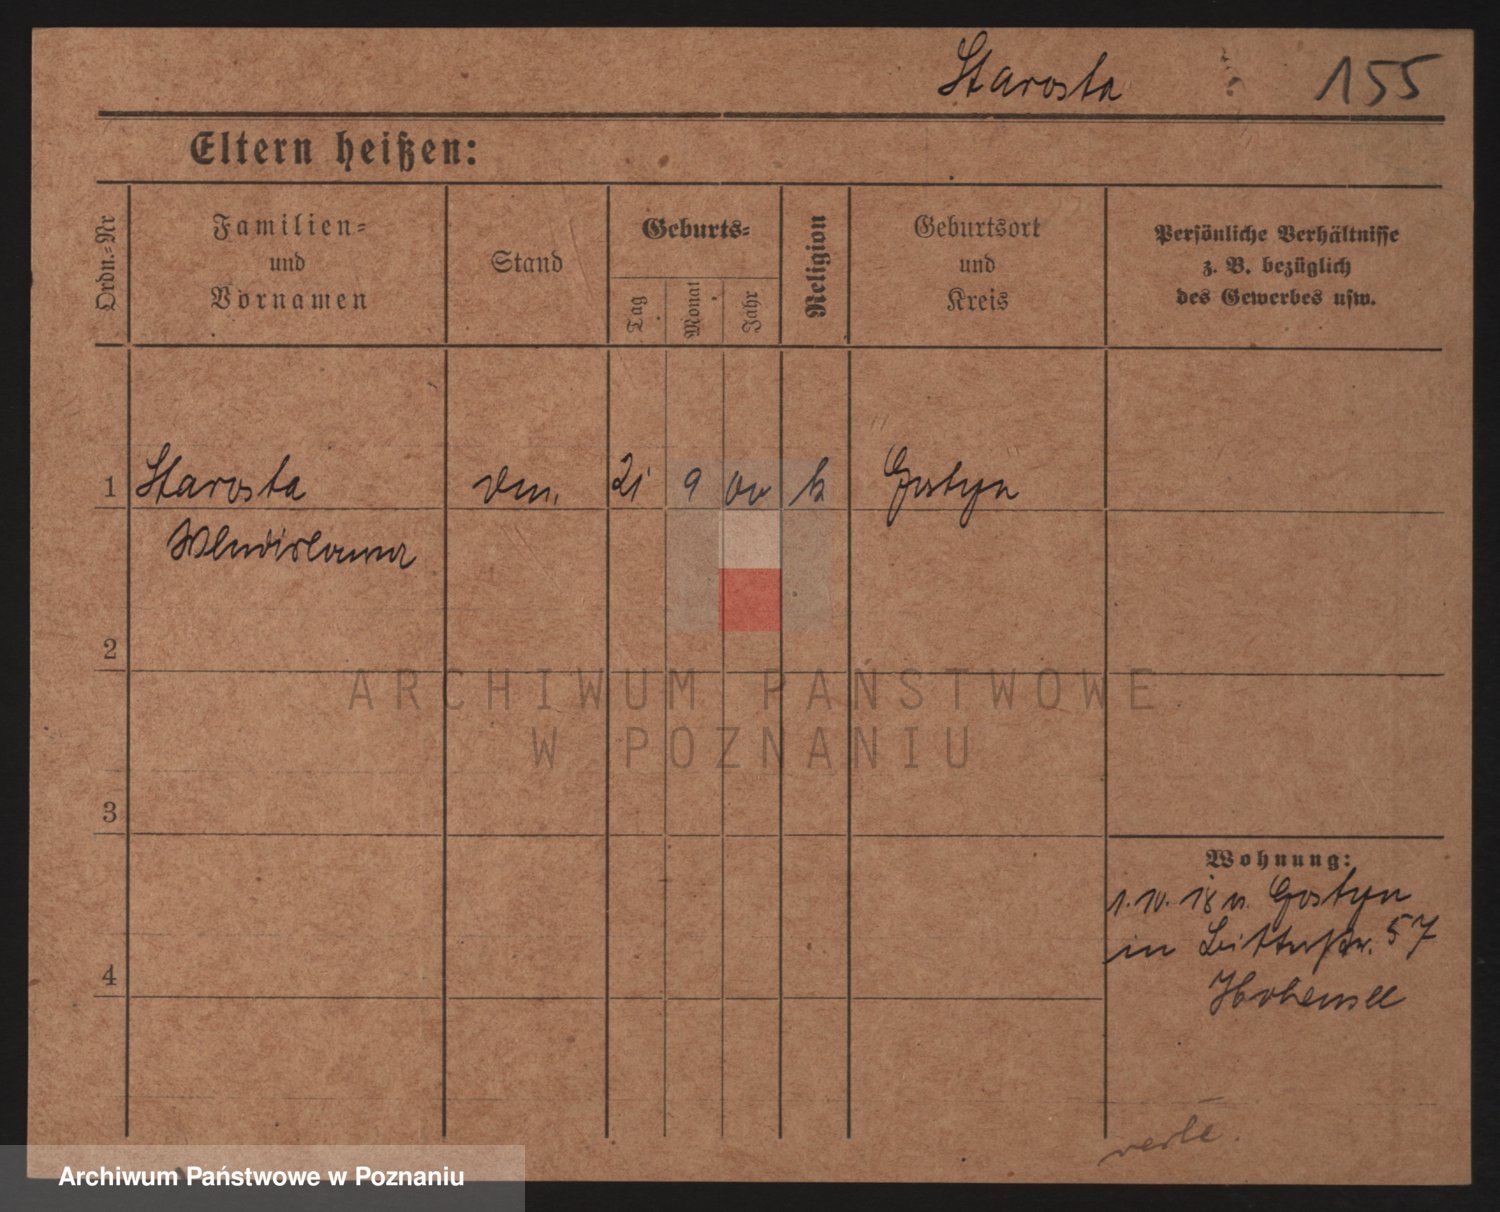 Starosta 155
Eltern heißen:
Ordn.-Nr
Familien-
und
Vornamen
Stand
Geburts-
Tag
Monat
Jahr
Religion
Geburtsort
und
Kreis
Persönliche Verhältnisse
z. B. bezüglich
des Gewerbes usw.
1 Starosta 21 9 00 k Gostyn
Wladislawa
2
3
4
Wohnung:
1. 10. 18 n. Gostyn
in 57
Hohensee
ARCHIWUM PAŃSTWOWE
W POZNANIU
Archiwum Państwowe w Poznaniu